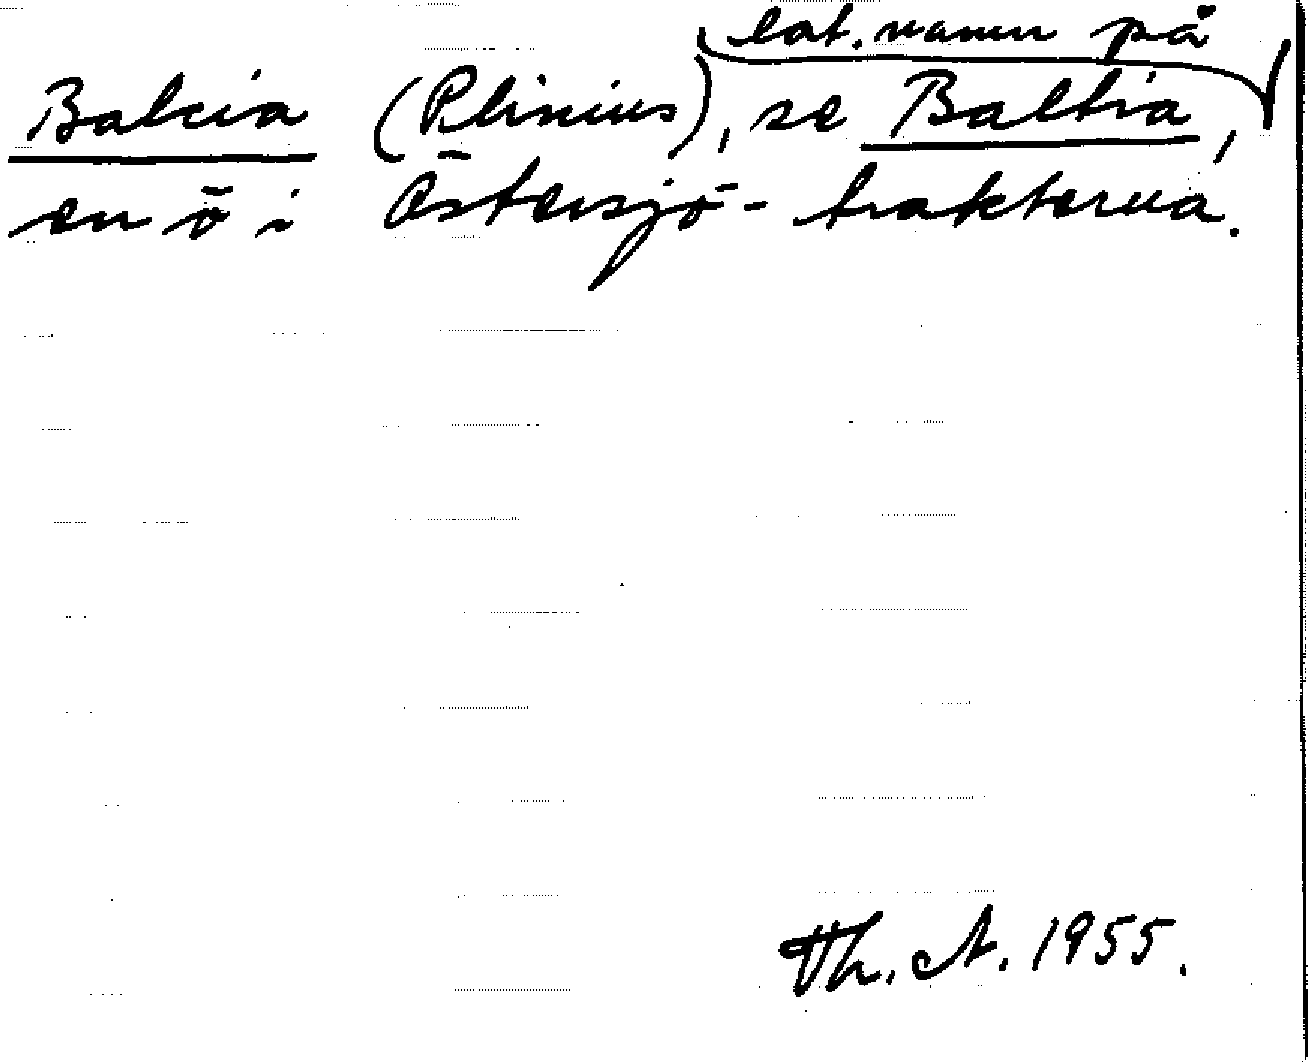 lat. namn på
Balcia (Plinius), se Baltia,
en ö i Östersjö-trakterna.
Th. A. 1955.